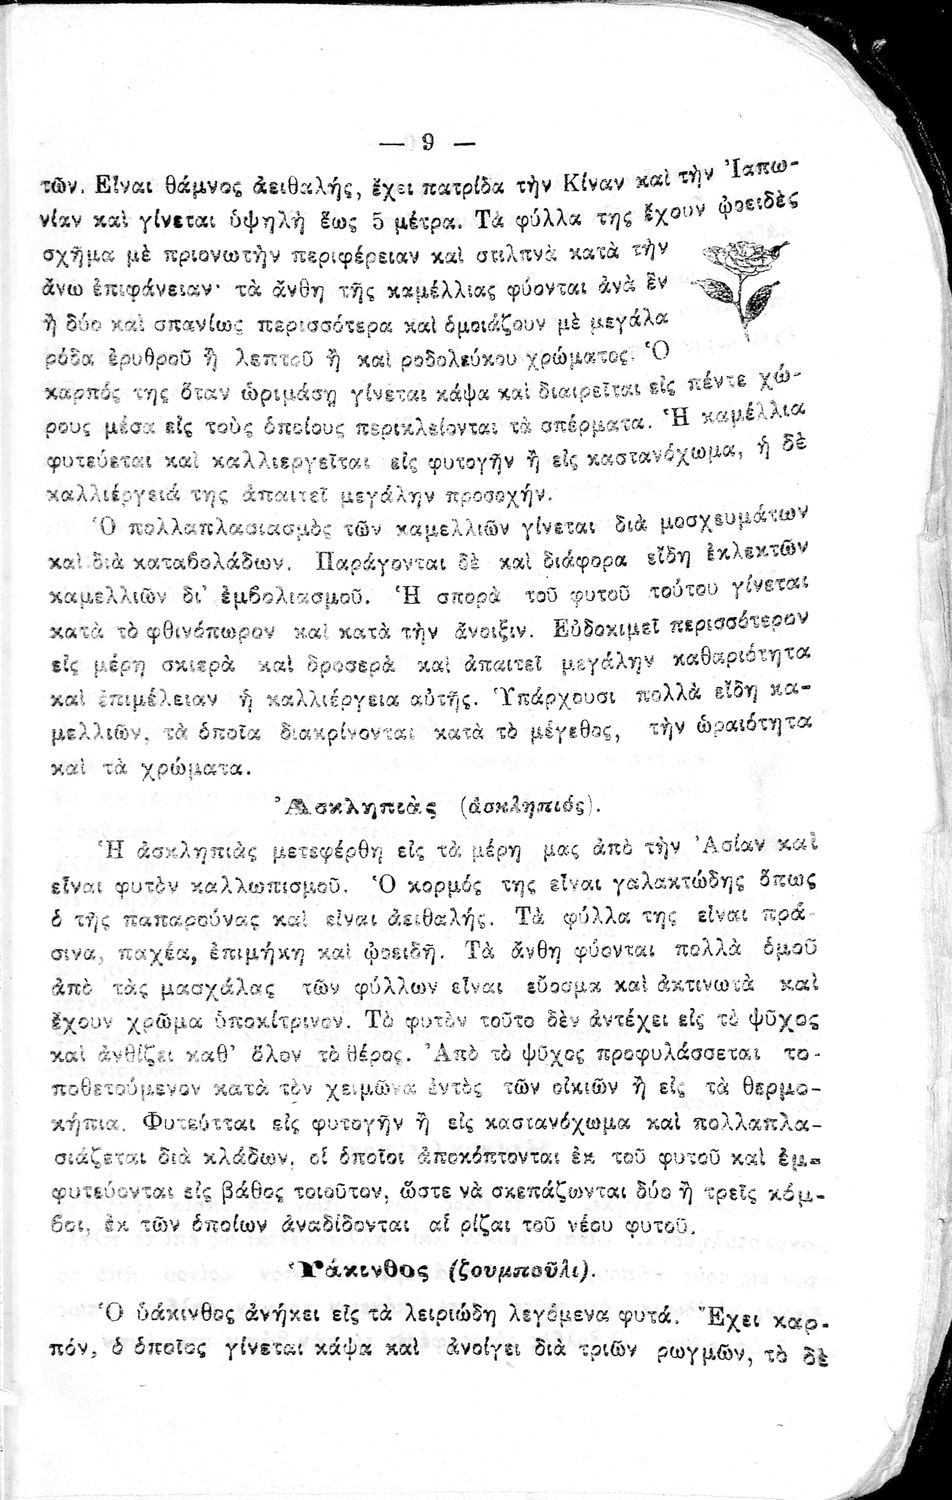 — 9 —
τῶν. Εἶναι θάμνος ἀειθαλής, ἔχει πατρίδα τὴν Κίναν καὶ τὴν Ἰαπω-
νίαν καὶ γίνεται ὑψηλὴ ἕως 5 μέτρα. Τὰ φύλλα της ἔχουν ᾠοειδὲς
σχῆμα μὲ πριονωτὴν περιφέρειαν καὶ στιλπνὰ κατὰ τὴν
ἄνω ἐπιφάνειαν· τὰ ἄνθη τῆς καμέλλιας φύονται ἀνὰ ἓν
ἢ δύο καὶ σπανίως περισσότερα καὶ ὁμοιάζουν μὲ μεγάλα
ρόδα ἐρυθροῦ ἢ λεπτοῦ ἢ καὶ ροδολεύκου χρώματος. Ὁ
καρπός της ὅταν ὡριμάσῃ γίνεται κάψα καὶ διαιρεῖται εἰς πέντε χώ-
ρους μέσα εἰς τοὺς ὁποίους περικλείονται τὰ σπέρματα. Ἡ καμέλλια
φυτεύεται καὶ καλλιεργεῖται εἰς φυτογῆν ἢ εἰς καστανόχωμα, ἡ δὲ
καλλιέργειά της ἀπαιτεῖ μεγάλην προσοχήν.
Ὁ πολλαπλασιασμὸς τῶν καμελλιῶν γίνεται διὰ μοσχευμάτων
καὶ διὰ καταβολάδων. Παράγονται δὲ καὶ διάφορα εἴδη ἐκλεκτῶν
καμελλιῶν δι' ἐμβολιασμοῦ. Ἡ σπορὰ τοῦ φυτοῦ τούτου γίνεται
κατὰ τὸ φθινόπωρον καὶ κατὰ τὴν ἄνοιξιν. Εὐδοκιμεῖ περισσότερον
εἰς μέρη σκιερὰ καὶ δροσερὰ καὶ ἀπαιτεῖ μεγάλην καθαριότητα
καὶ ἐπιμέλειαν ἡ καλλιέργεια αὐτῆς. Ὑπάρχουσι πολλὰ εἴδη κα-
μελλιῶν, τὰ ὁποῖα διακρίνονται κατὰ τὸ μέγεθος, τὴν ὡραιότητα
καὶ τὰ χρώματα.
Ἀσκληπιὰς (ἀσκληπιός).
Ἡ ἀσκληπιὰς μετεφέρθη εἰς τὰ μέρη μας ἀπὸ τὴν Ἀσίαν καὶ
εἶναι φυτὸν καλλωπισμοῦ. Ὁ κορμός της εἶναι γαλακτώδης ὅπως
ὁ τῆς παπαρούνας καὶ εἶναι ἀειθαλής. Τὰ φύλλα της εἶναι πρά-
σινα, παχέα, ἐπιμήκη καὶ ᾠοειδῆ. Τὰ ἄνθη φύονται πολλὰ ὁμοῦ
ἀπὸ τὰς μασχάλας τῶν φύλλων εἶναι εὔοσμα καὶ ἀκτινωτὰ καὶ
ἔχουν χρῶμα ὑποκίτρινον. Τὸ φυτὸν τοῦτο δὲν ἀντέχει εἰς τὸ ψῦχος
καὶ ἀνθίζει καθ' ὅλον τὸ θέρος. Ἀπὸ τὸ ψῦχος προφυλάσσεται το-
ποθετούμενον κατὰ τὸν χειμῶνα ἐντὸς τῶν οἰκιῶν ἢ εἰς τὰ θερμο-
κήπια. Φυτεύται εἰς φυτογῆν ἢ εἰς καστανόχωμα καὶ πολλαπλα-
σιάζεται διὰ κλάδων, οἱ ὁποῖοι ἀποκόπτονται ἐκ τοῦ φυτοῦ καὶ ἐμ-
φυτεύονται εἰς βάθος τοιοῦτον, ὥστε νὰ σκεπάζωνται δύο ἢ τρεῖς κόμ-
βοι, ἐκ τῶν ὁποίων ἀναδίδονται αἱ ρίζαι τοῦ νέου φυτοῦ.
Ὑάκινθος (ζουμπούλι).
Ὁ ὑάκινθος ἀνήκει εἰς τὰ λειριώδη λεγόμενα φυτά. Ἔχει καρ-
πόν, ὁ ὁποῖος γίνεται κάψα καὶ ἀνοίγει διὰ τριῶν ρωγμῶν, τὸ δὲ